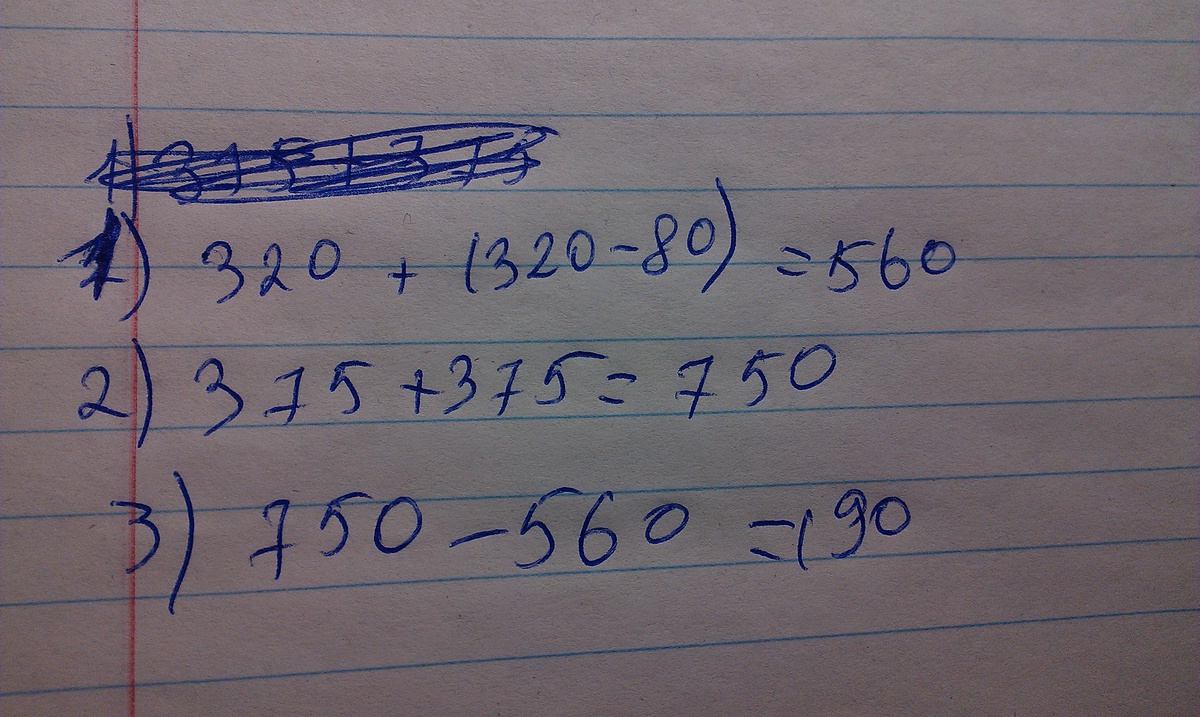 1) 320 + (320-80) = 560
2) 375 + 375 = 750
3) 750 - 560 = 190